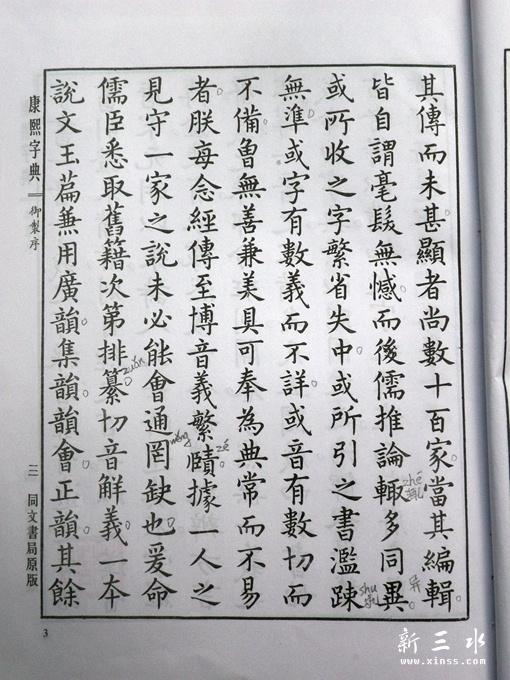 其傳而未甚顯者尚數十百家。當其編輯。
皆自謂毫髮無憾。而後儒推論。輒多同異。
zhé
辄
异
或所收之字繁省失中。或所引之書濫踈
shu
疏
無準。或字有數義而不詳。或音有數切而
不備。曾無善兼美具可奉為典常而不易
者。朕每念經傳至博。音義繁賾。據一人之
zé
見。守一家之說。未必能會通罔缺也。爰命
wǎng
儒臣悉取舊籍。次第排纂。切音解義。一本
zuǎn
說文玉篇。兼用廣韻。集韻。韻會。正韻。其餘
康熙字典
御製序
三
同文書局原版
3
新三水
www.xinss.com